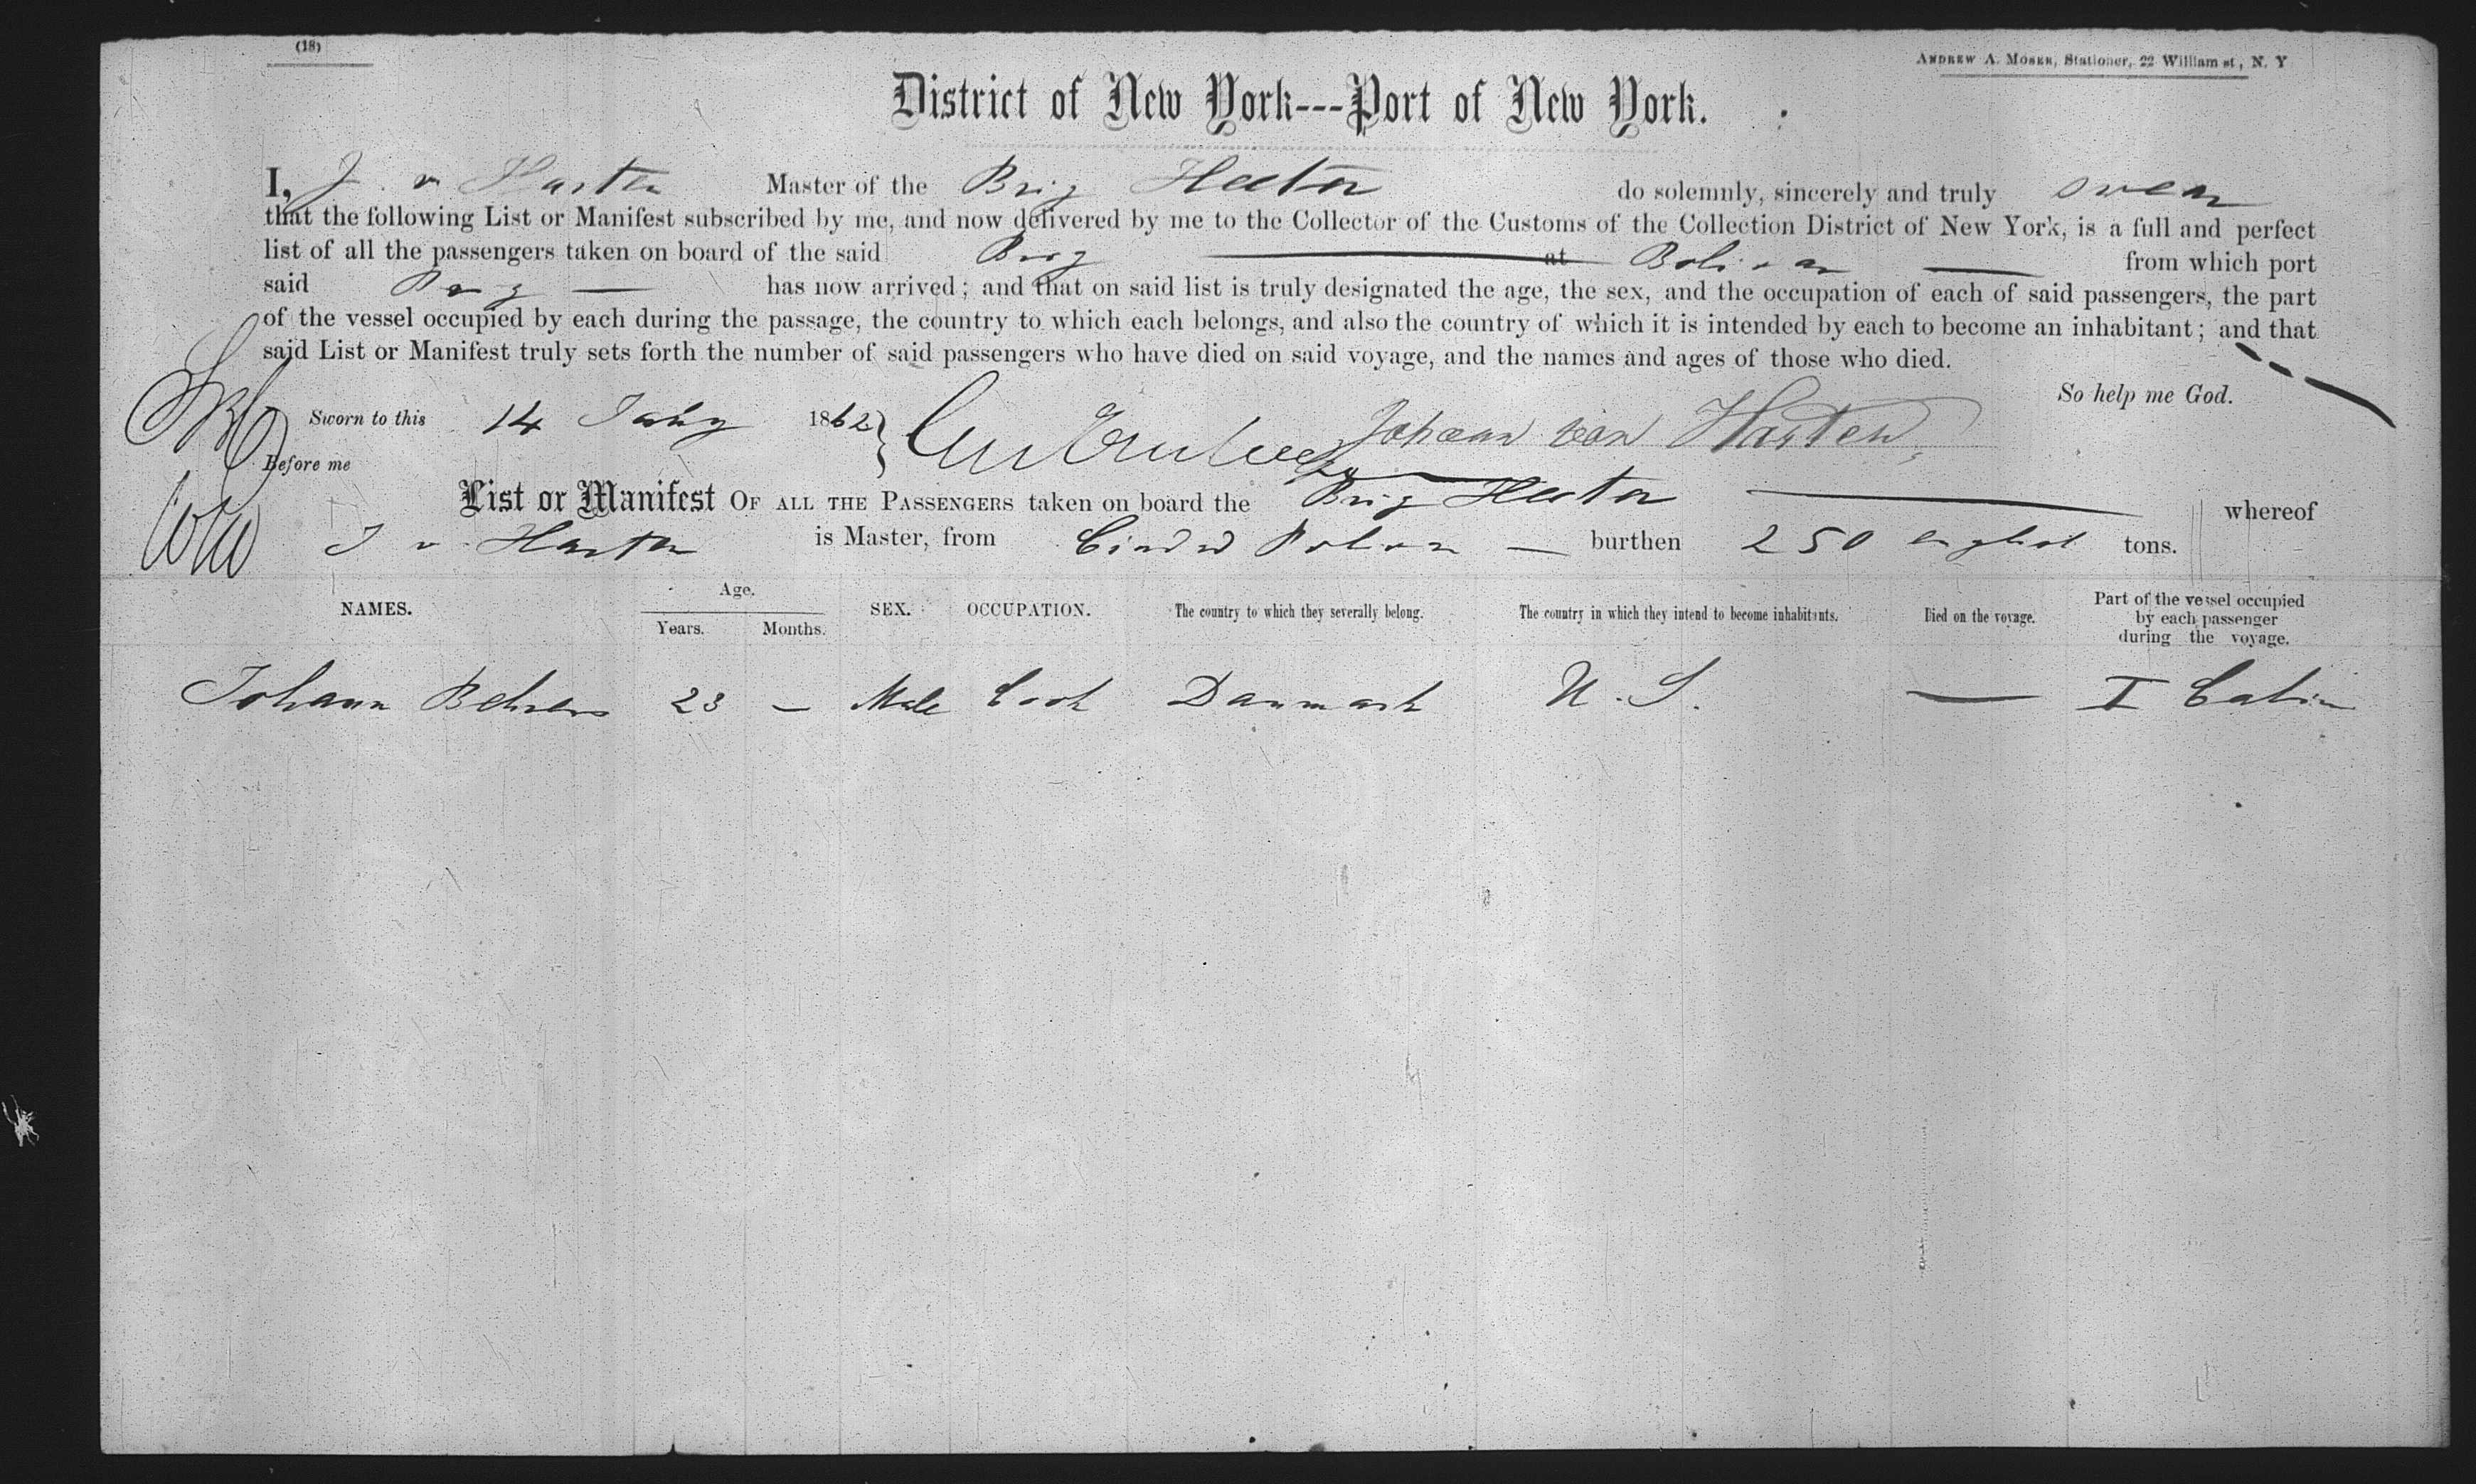 (18)
ANDREW A. MOSER, Stationer, 22 William st, N. Y
District of New York---Port of New York.
I, J. v Harten Master of the Brig Hector do solemnly, sincerely and truly swear
that the following List or Manifest subscribed by me, and now delivered by me to the Collector of the Customs of the Collection District of New York, is a full and perfect
list of all the passengers taken on board of the said Brig at Bolivar from which port
said Brig has now arrived; and that on said list is truly designated the age, the sex, and the occupation of each of said passengers, the part
of the vessel occupied by each during the passage, the country to which each belongs, and also the country of which it is intended by each to become an inhabitant; and that
said List or Manifest truly sets forth the number of said passengers who have died on said voyage, and the names and ages of those who died.
So help me God.
Sworn to this 14 1862 } Johann von Harten
Before me
List or Manifest OF ALL THE PASSENGERS taken on board the Brig Hector whereof
J v. Harten is Master, from burthen 250 english tons.
NAMES. Age. Years. Months. SEX. OCCUPATION. The country to which they severally belong. The country in which they intend to become inhabitants. Died on the voyage. Part of the vessel occupied by each passenger during the voyage.
Johann Behrens 23 — Male Cook Danmark U. S. — I Cabin